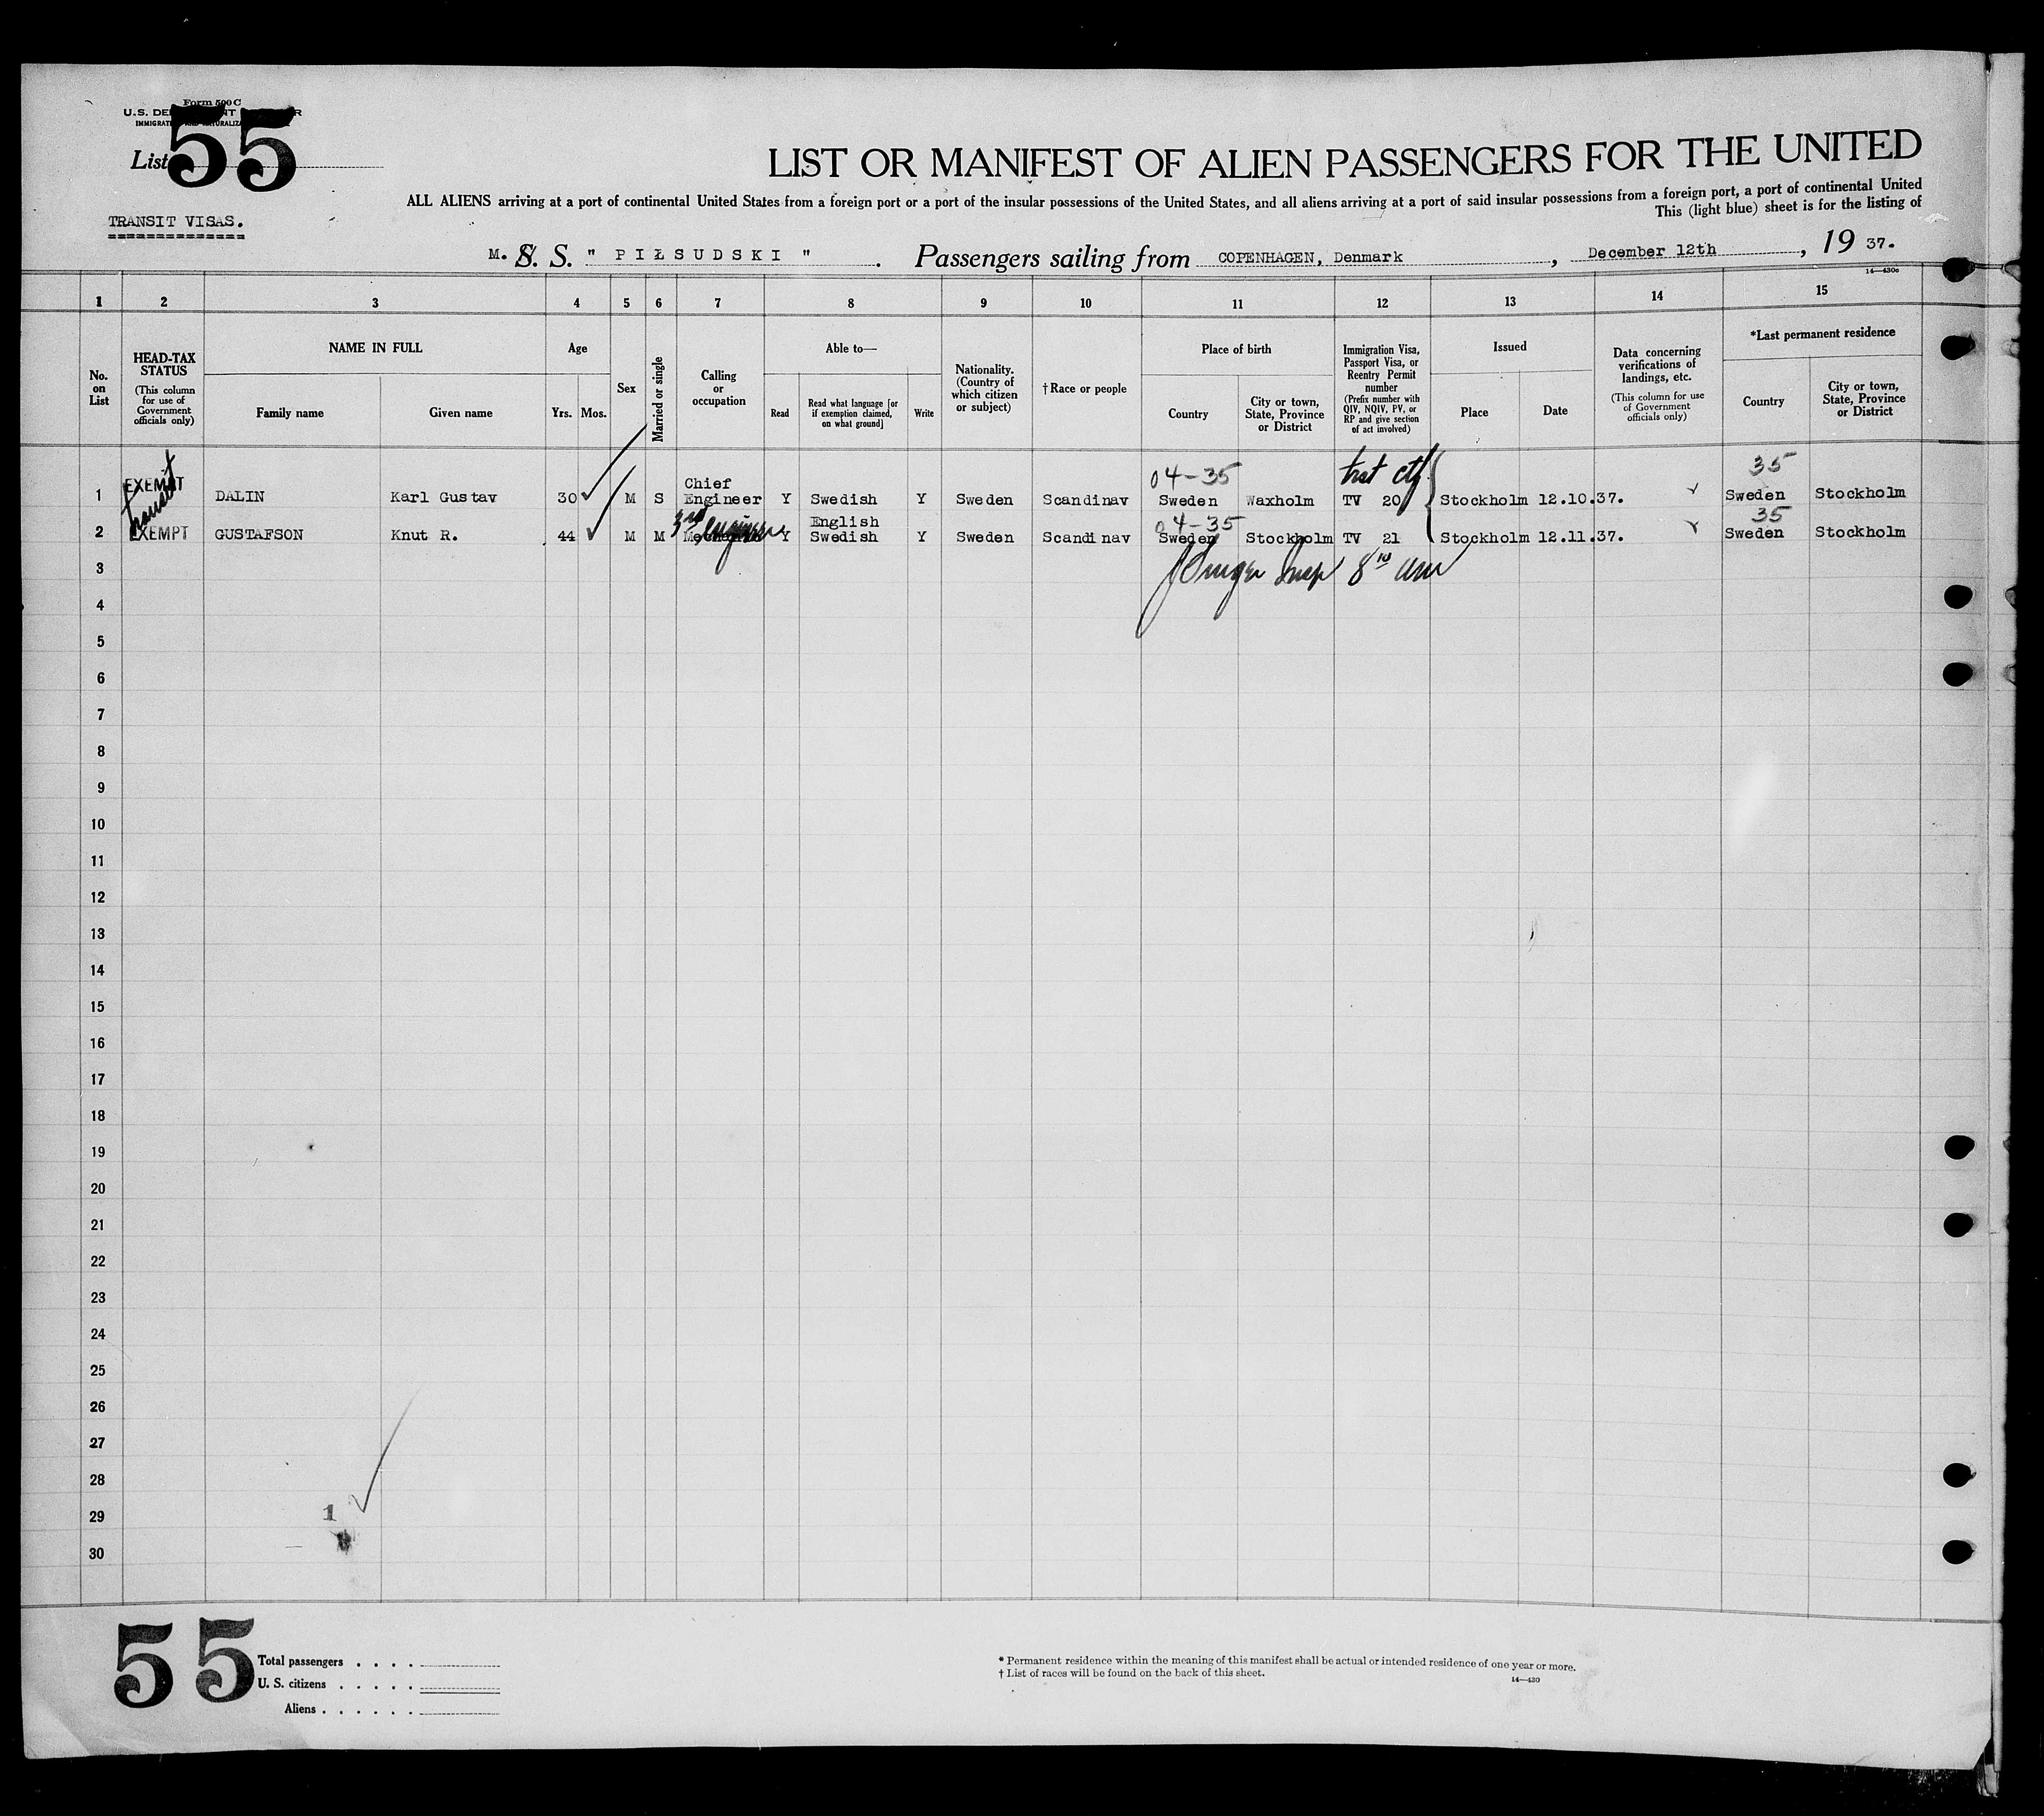 Form 500 C
U.S. DE
IMMIGRAT
List 55
LIST OR MANIFEST OF ALIEN PASSENGERS FOR THE UNITED
ALL ALIENS arriving at a port of continental United States from a foreign port or a port of the insular possessions of the United States, and all aliens arriving at a port of said insular possessions from a foreign port, a port of continental United
This (light blue) sheet is for the listing of
TRANSIT VISAS.
M. S. S. " PIŁSUDSKI " . Passengers sailing from COPENHAGEN, Denmark , December 12th , 19 37.
14—430c
1 2 3 4 5 6 7 8 9 10 11 12 13 14 15
No. on List
HEAD-TAX STATUS
(This column for use of Government officials only)
NAME IN FULL
Family name
Given name
Age
Yrs. Mos.
Sex
Married or single
Calling or occupation
Able to—
Read
Read what language [or if exemption claimed, on what ground]
Write
Nationality. (Country of which citizen or subject)
†Race or people
Place of birth
Country
City or town, State, Province or District
Immigration Visa, Passport Visa, or Reentry Permit number
(Prefix number with QIV, NQIV, PV, or RP and give section of act involved)
Issued
Place
Date
Data concerning verifications of landings, etc.
(This column for use of Government officials only)
*Last permanent residence
Country
City or town, State, Province or District
transit
04-35 35
1 EXEMPT DALIN Karl Gustav 30 M S Chief Engineer Y Swedish Y Sweden Scandinav Sweden Waxholm TV 20 Stockholm 12.10.37. Sweden Stockholm
04-35 35
2 EXEMPT GUSTAFSON Knut R. 44 M M 3rd Engineer Y English Swedish Y Sweden Scandinav Sweden Stockholm TV 21 Stockholm 12.11.37. Sweden Stockholm
3
4
5
6
7
8
9
10
11
12
13
14
15
16
17
18
19
20
21
22
23
24
25
26
27
28
29 1
30
55
Total passengers . . . .
U. S. citizens . . . . .
Aliens . . . . . .
* Permanent residence within the meaning of this manifest shall be actual or intended residence of one year or more.
† List of races will be found on the back of this sheet.
14—430